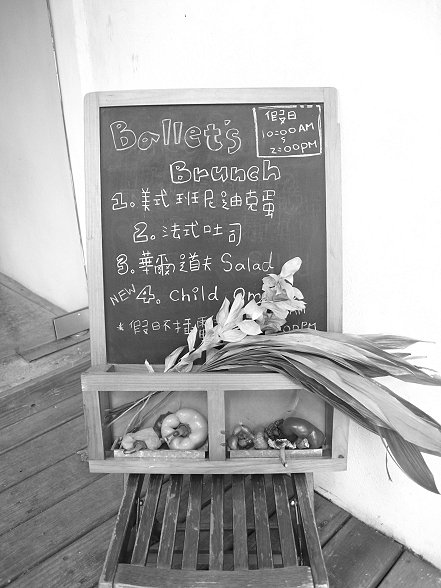 Ballet's
假日
10:00 AM
~
2:00 PM
Brunch
1. 美式班尼迪克蛋
2. 法式吐司
3. 華爾道夫 Salad
NEW 4. Child
* 假日不
00PM